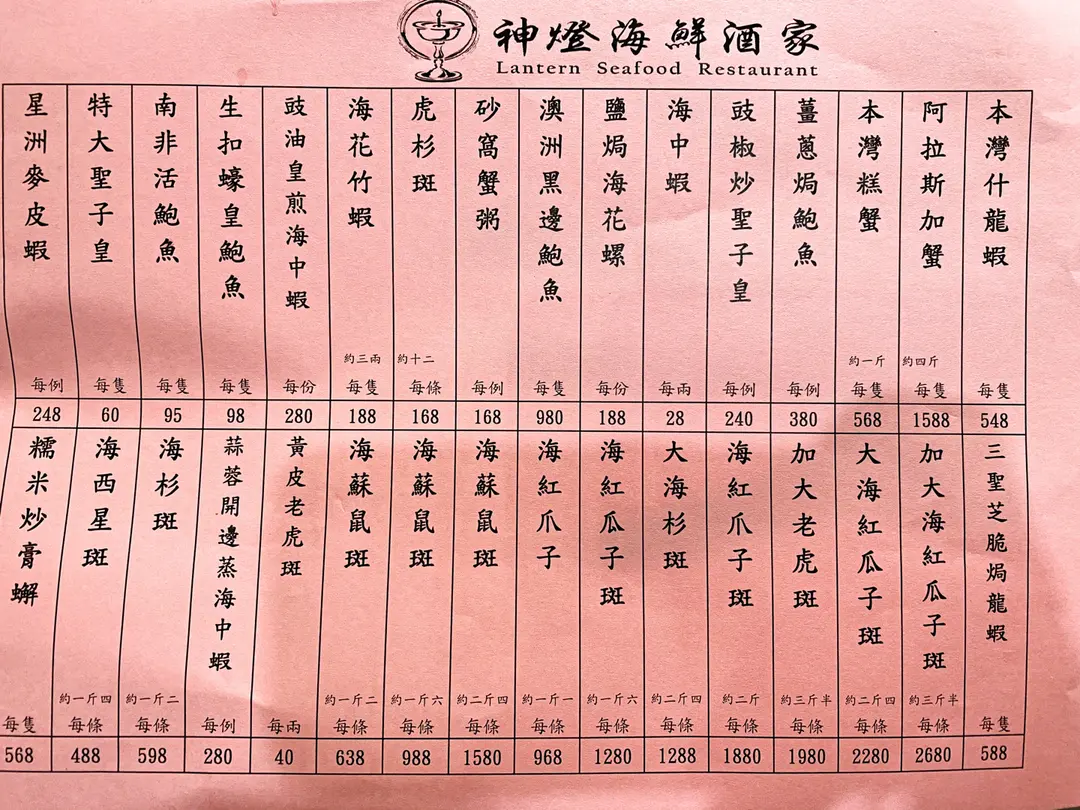 神燈海鮮酒家
Lantern Seafood Restaurant
本灣什龍蝦 每隻 548
阿拉斯加蟹 約四斤 每隻 1588
本灣糕蟹 約一斤 每隻 568
薑蔥焗鮑魚 每例 380
豉椒炒聖子皇 每例 240
海中蝦 每兩 28
鹽焗海花螺 每份 188
澳洲黑邊鮑魚 每隻 980
砂窩蟹粥 每例 168
虎杉斑 約十二 每條 168
海花竹蝦 約三兩 每隻 188
豉油皇煎海中蝦 每份 280
生扣蠔皇鮑魚 每隻 98
南非活鮑魚 每隻 95
特大聖子皇 每隻 60
星洲麥皮蝦 每例 248
三聖芝脆焗龍蝦 每隻 588
加大海紅瓜子斑 約三斤半 每條 2680
大海紅瓜子斑 約二斤四 每條 2280
加大老虎斑 約三斤半 每條 1980
海紅爪子斑 約二斤 每條 1880
大海杉斑 約二斤四 每條 1288
海紅瓜子斑 約一斤六 每條 1280
海紅爪子 約一斤一 每條 968
海蘇鼠斑 約二斤四 每條 1580
海蘇鼠斑 約一斤六 每條 988
海蘇鼠斑 約一斤二 每條 638
黃皮老虎斑 每兩 40
蒜蓉開邊蒸海中蝦 每例 280
海杉斑 約一斤二 每條 598
海西星斑 約一斤四 每條 488
糯米炒膏蠏 每隻 568